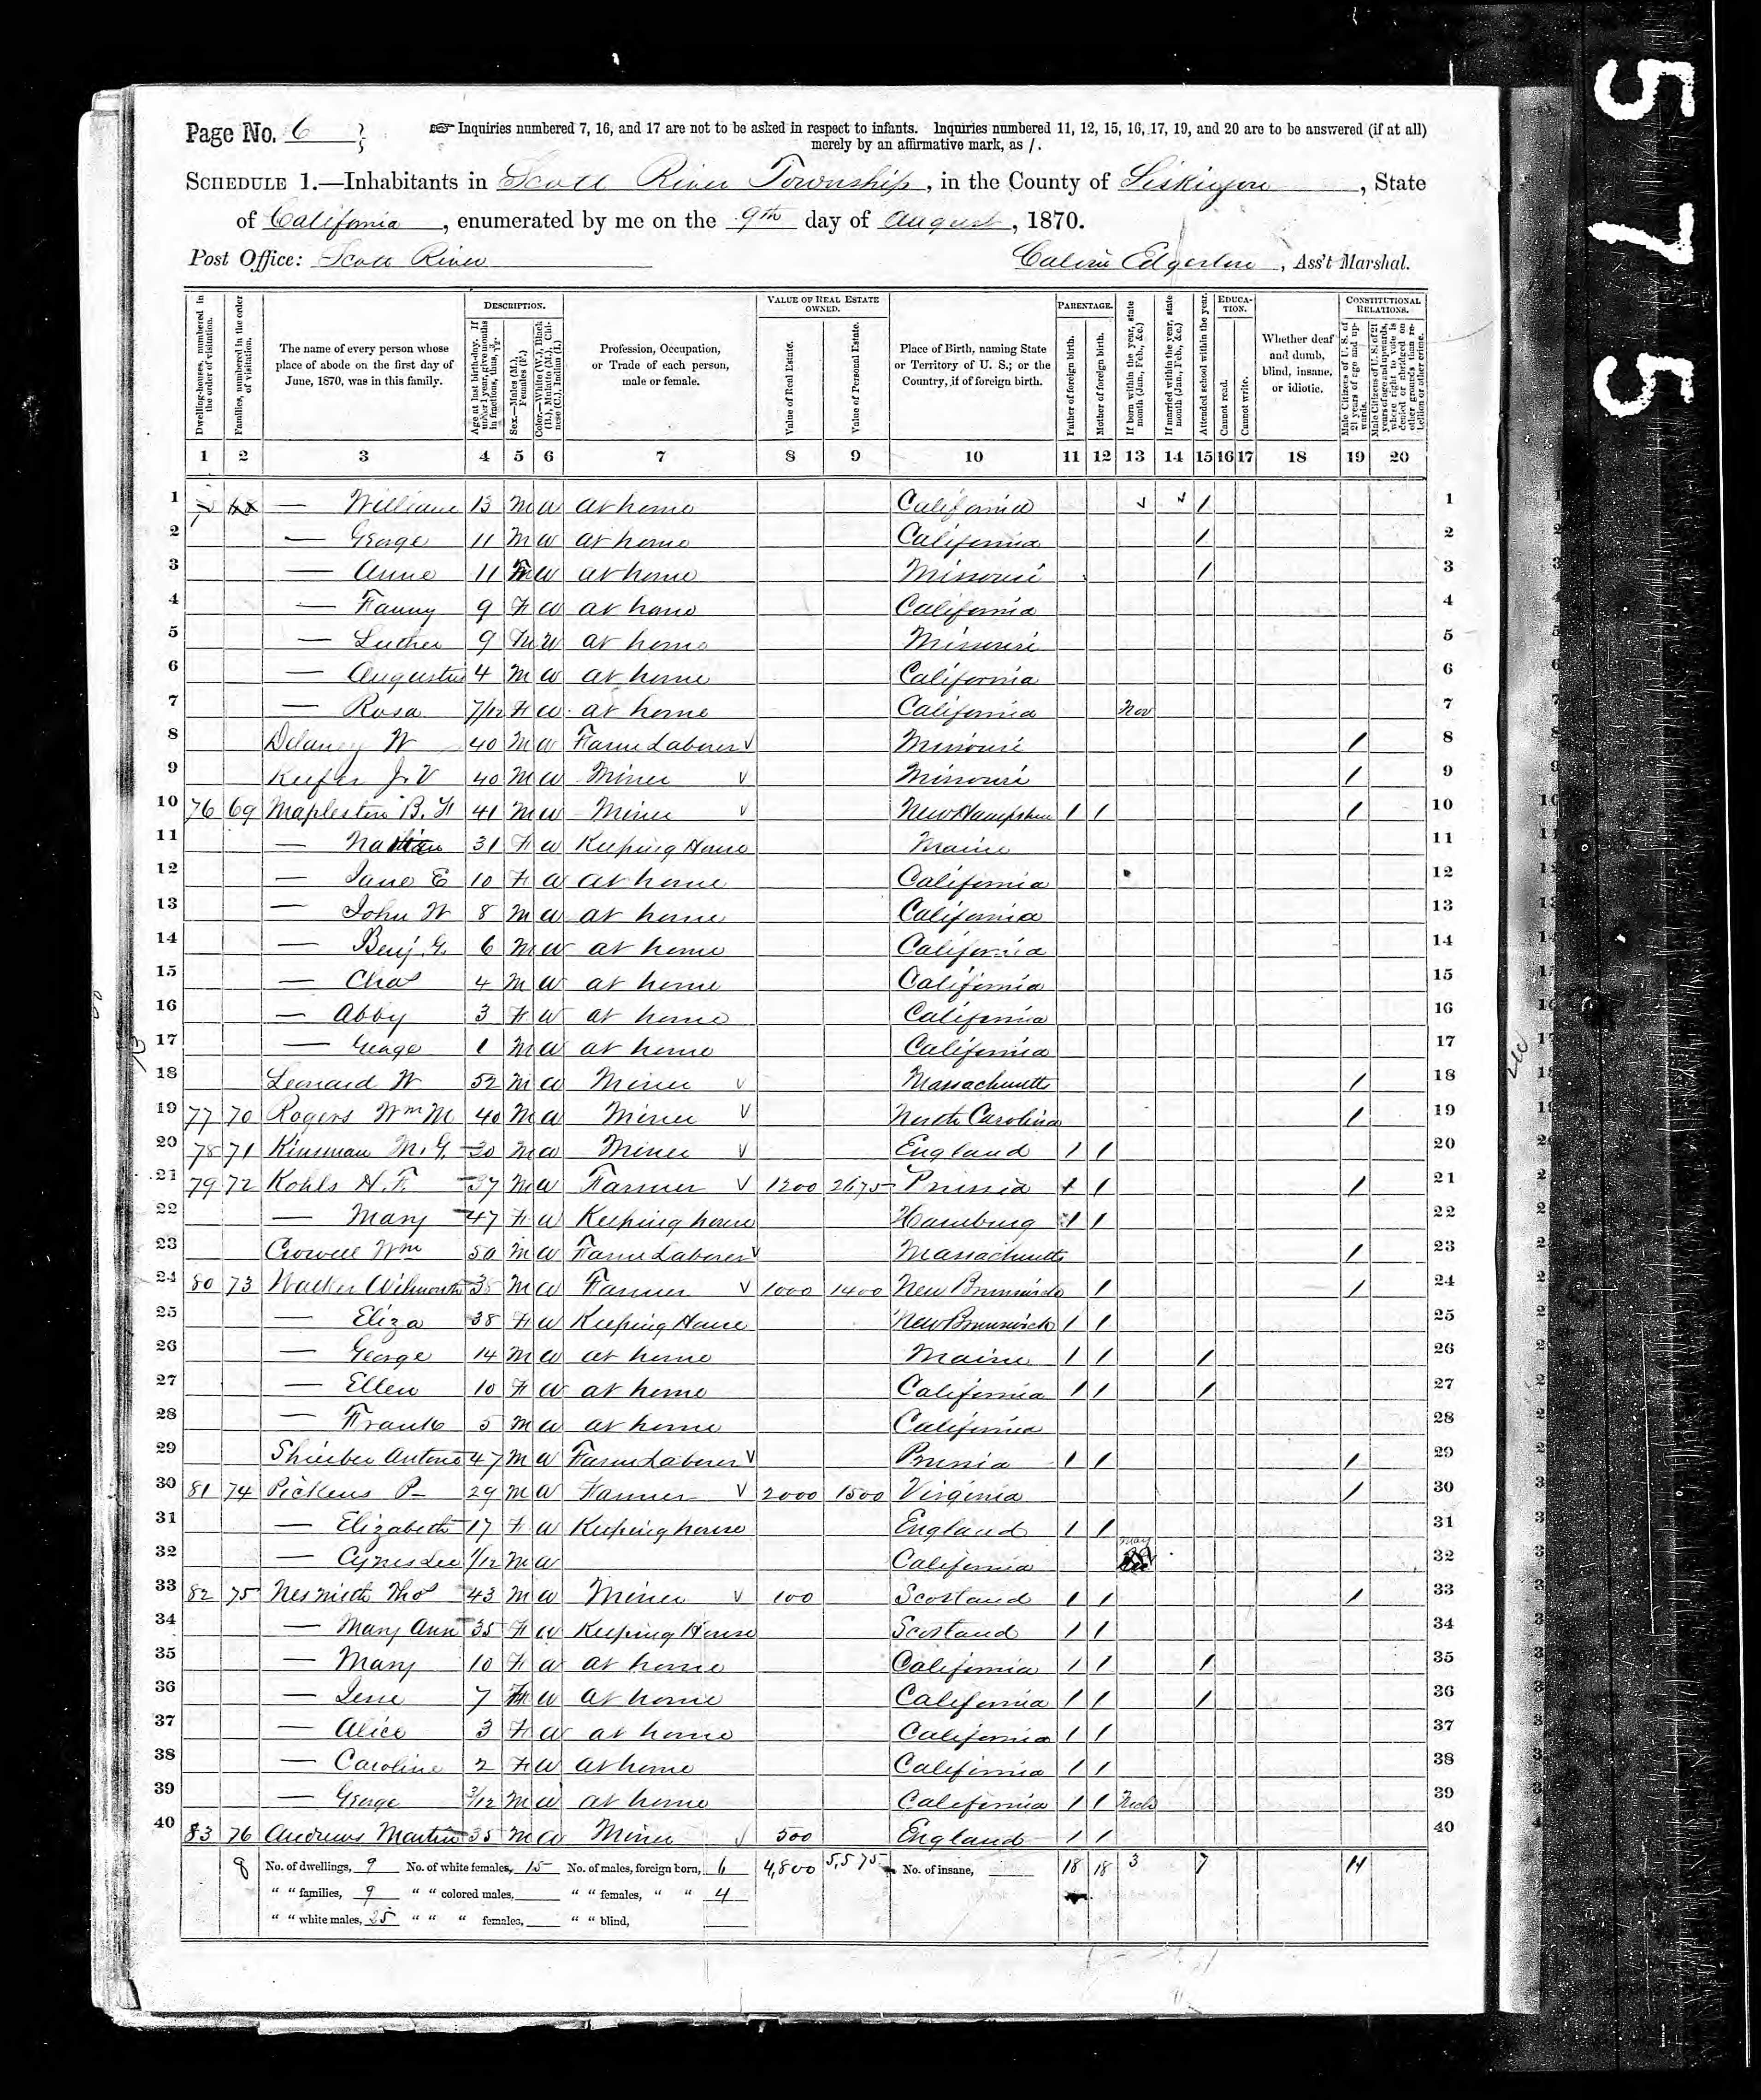 Page No. 6
☞ Inquiries numbered 7, 16, and 17 are not to be asked in respect to infants. Inquiries numbered 11, 12, 15, 16, 17, 19, and 20 are to be answered (if at all)
merely by an affirmative mark, as /.
SCHEDULE 1.—Inhabitants in Scott River Township, in the County of Siskiyou, State
of California, enumerated by me on the 9th day of August, 1870.
Post Office: Scott River
Edgerton, Ass't Marshal.
Dwelling-houses, numbered in the order of visitation.
Families, numbered in the order of visitation.
The name of every person whose place of abode on the first day of June, 1870, was in this family.
DESCRIPTION.
Age at last birth-day. If under 1 year, give months in fractions, thus, 3/12.
Sex.—Males (M.), Females (F.)
Color.—White (W.), Black (B.), Mulatto (M.), Chinese (C.), Indian (I.)
Profession, Occupation, or Trade of each person, male or female.
VALUE OF REAL ESTATE OWNED.
Value of Real Estate.
Value of Personal Estate.
Place of Birth, naming State or Territory of U. S.; or the Country, if of foreign birth.
PARENTAGE.
Father of foreign birth.
Mother of foreign birth.
If born within the year, state month (Jan., Feb., &c.)
If married within the year, state month (Jan., Feb., &c.)
Attended school within the year.
EDUCATION.
Cannot read.
Cannot write.
Whether deaf and dumb, blind, insane, or idiotic.
CONSTITUTIONAL RELATIONS.
Male Citizens of U. S. of 21 years of age and upwards.
Male Citizens of U. S. of 21 years of age and upwards, where right to vote is denied or abridged on other grounds than rebellion or other crime.
1 2 3 4 5 6 7 8 9 10 11 12 13 14 15 16 17 18 19 20
1 — William 13 M W at home California / 1
2 — George 11 M W at home California / 2
3 — Anne 11 F W at home Missouri / 3
4 — Fanny 9 F W at home California 4
5 — Luther 9 M W at home Missouri 5
6 — Augustus 4 M W at home California 6
7 — Rosa 7/12 F W at home California Nov 7
8 Delaney W 40 M W Farm Laborer Missouri / 8
9 Keefer J. V 40 M W Miner Missouri / 9
10 76 69 B. F 41 M W Miner New Hampshire / / / 10
11 — 31 F W Keeping House Maine 11
12 — Jane E 10 F W at home California 12
13 — John W 8 M W at home California 13
14 — Benj. G. 6 M W at home California 14
15 — Chas 4 M W at home California 15
16 — Abby 3 F W at home California 16
17 — George 1 M W at home California 17
18 Leonard W 52 M W Miner Massachusetts / 18
19 77 70 Rogers Wm M 40 M W Miner North Carolina / 19
20 78 71 Kinsman M. G. 30 M W Miner England / / 20
21 79 72 Kohls H. F. 37 M W Farmer 1200 2675 Prussia / / / 21
22 — Mary 47 F W Keeping house Hamburg / / 22
23 Crowell Wm 50 M W Farm Laborer Massachusetts / 23
24 80 73 Walker 38 M W Farmer 1000 1400 New Brunswick / / 24
25 — Eliza 38 F W Keeping House New Brunswick / / 25
26 — George 14 M W at home Maine / / / 26
27 — Ellen 10 F W at home California / / / 27
28 — Frank 5 M W at home California 28
29 Antone 47 M W Farm Laborer Prussia / / / 29
30 81 74 Pickens P— 29 M W Farmer 2000 1500 Virginia / 30
31 — Elizabeth 17 F W Keeping house England / / 31
32 — Cyrus Lee 1/12 M W California May 32
33 82 75 Nesmith Thos 43 M W Miner 100 Scotland / / / 33
34 — Mary Ann 35 F W Keeping House Scotland / / 34
35 — Mary 10 F W at home California / / / 35
36 — Jesse 7 W at home California / / / 36
37 — Alice 3 F W at home California / / 37
38 — Caroline 2 F W at home California / / 38
39 — George 3/12 M W at home California / / 39
40 83 76 Andrews Martin 35 M W Miner 500 England / / 40
8 No. of dwellings, 9 No. of white females, 15 No. of males, foreign born, 6 4,800 5,575 No. of insane, 18 18 3 7 14
" " families, 9 " " colored males, " " females, " " 4
" " white males, 25 " " " females, " " blind,
575